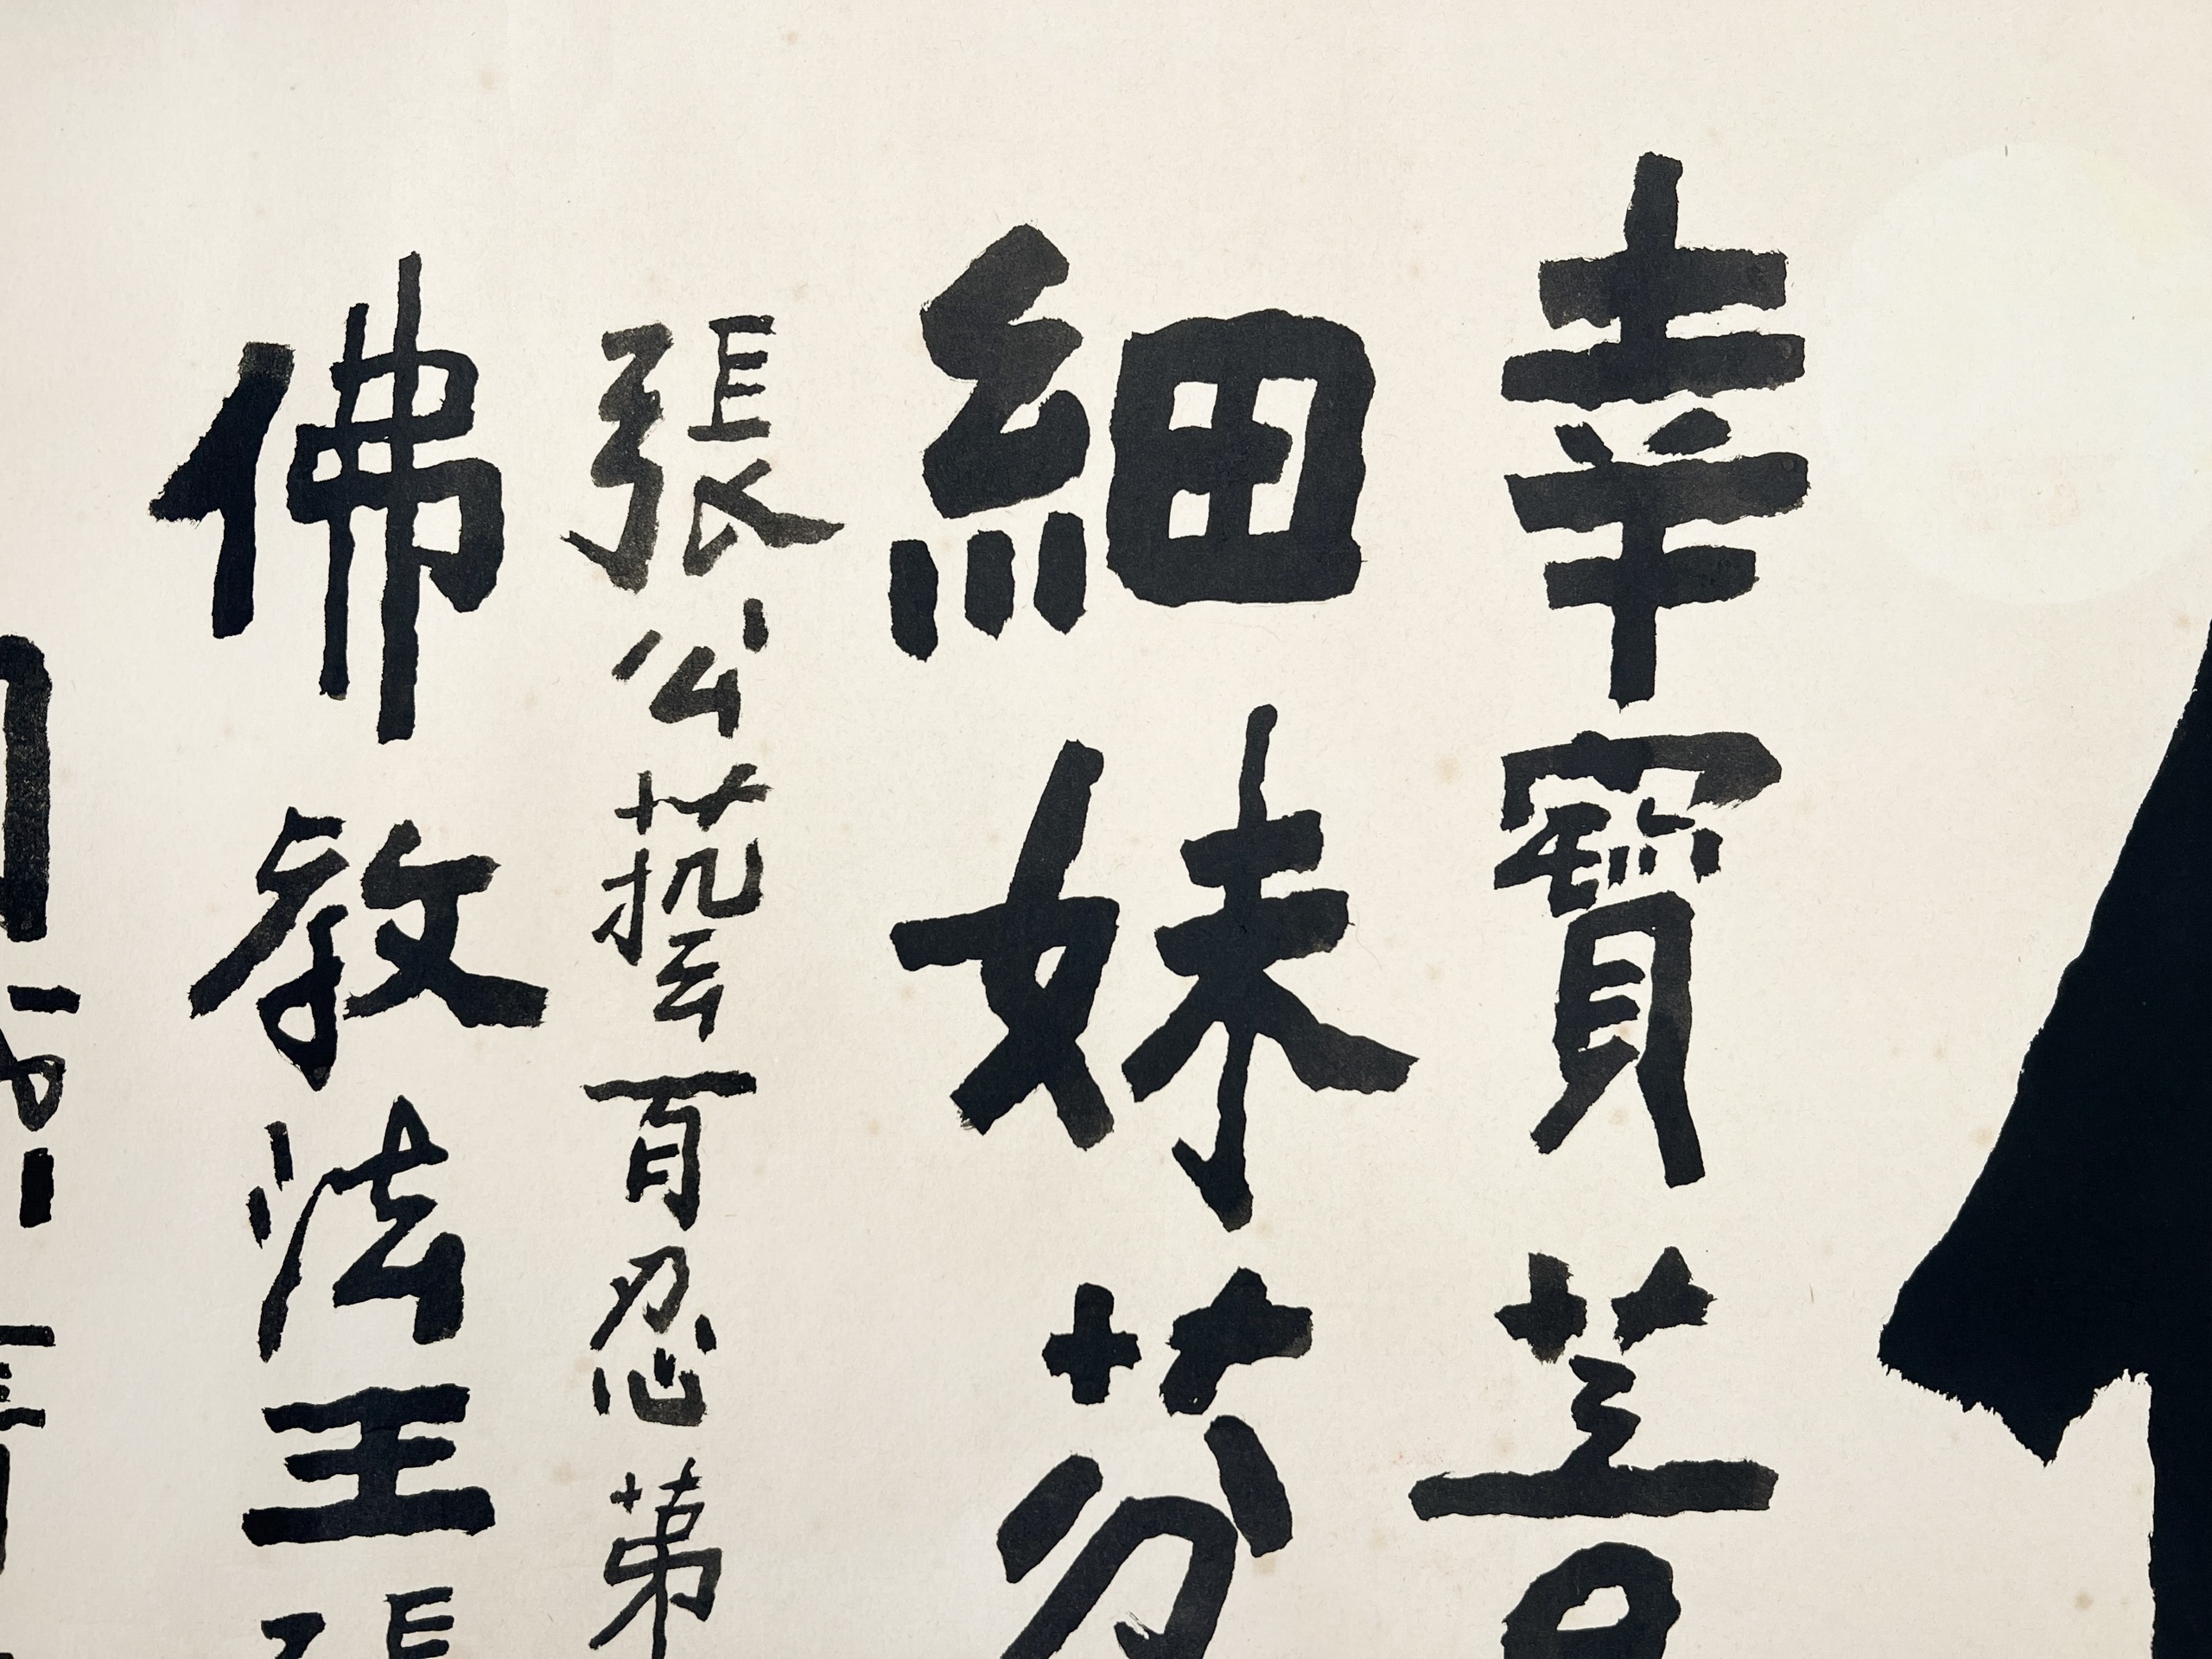 幸寶芝
細妹芬
張公藝百忍苐
佛教法王張